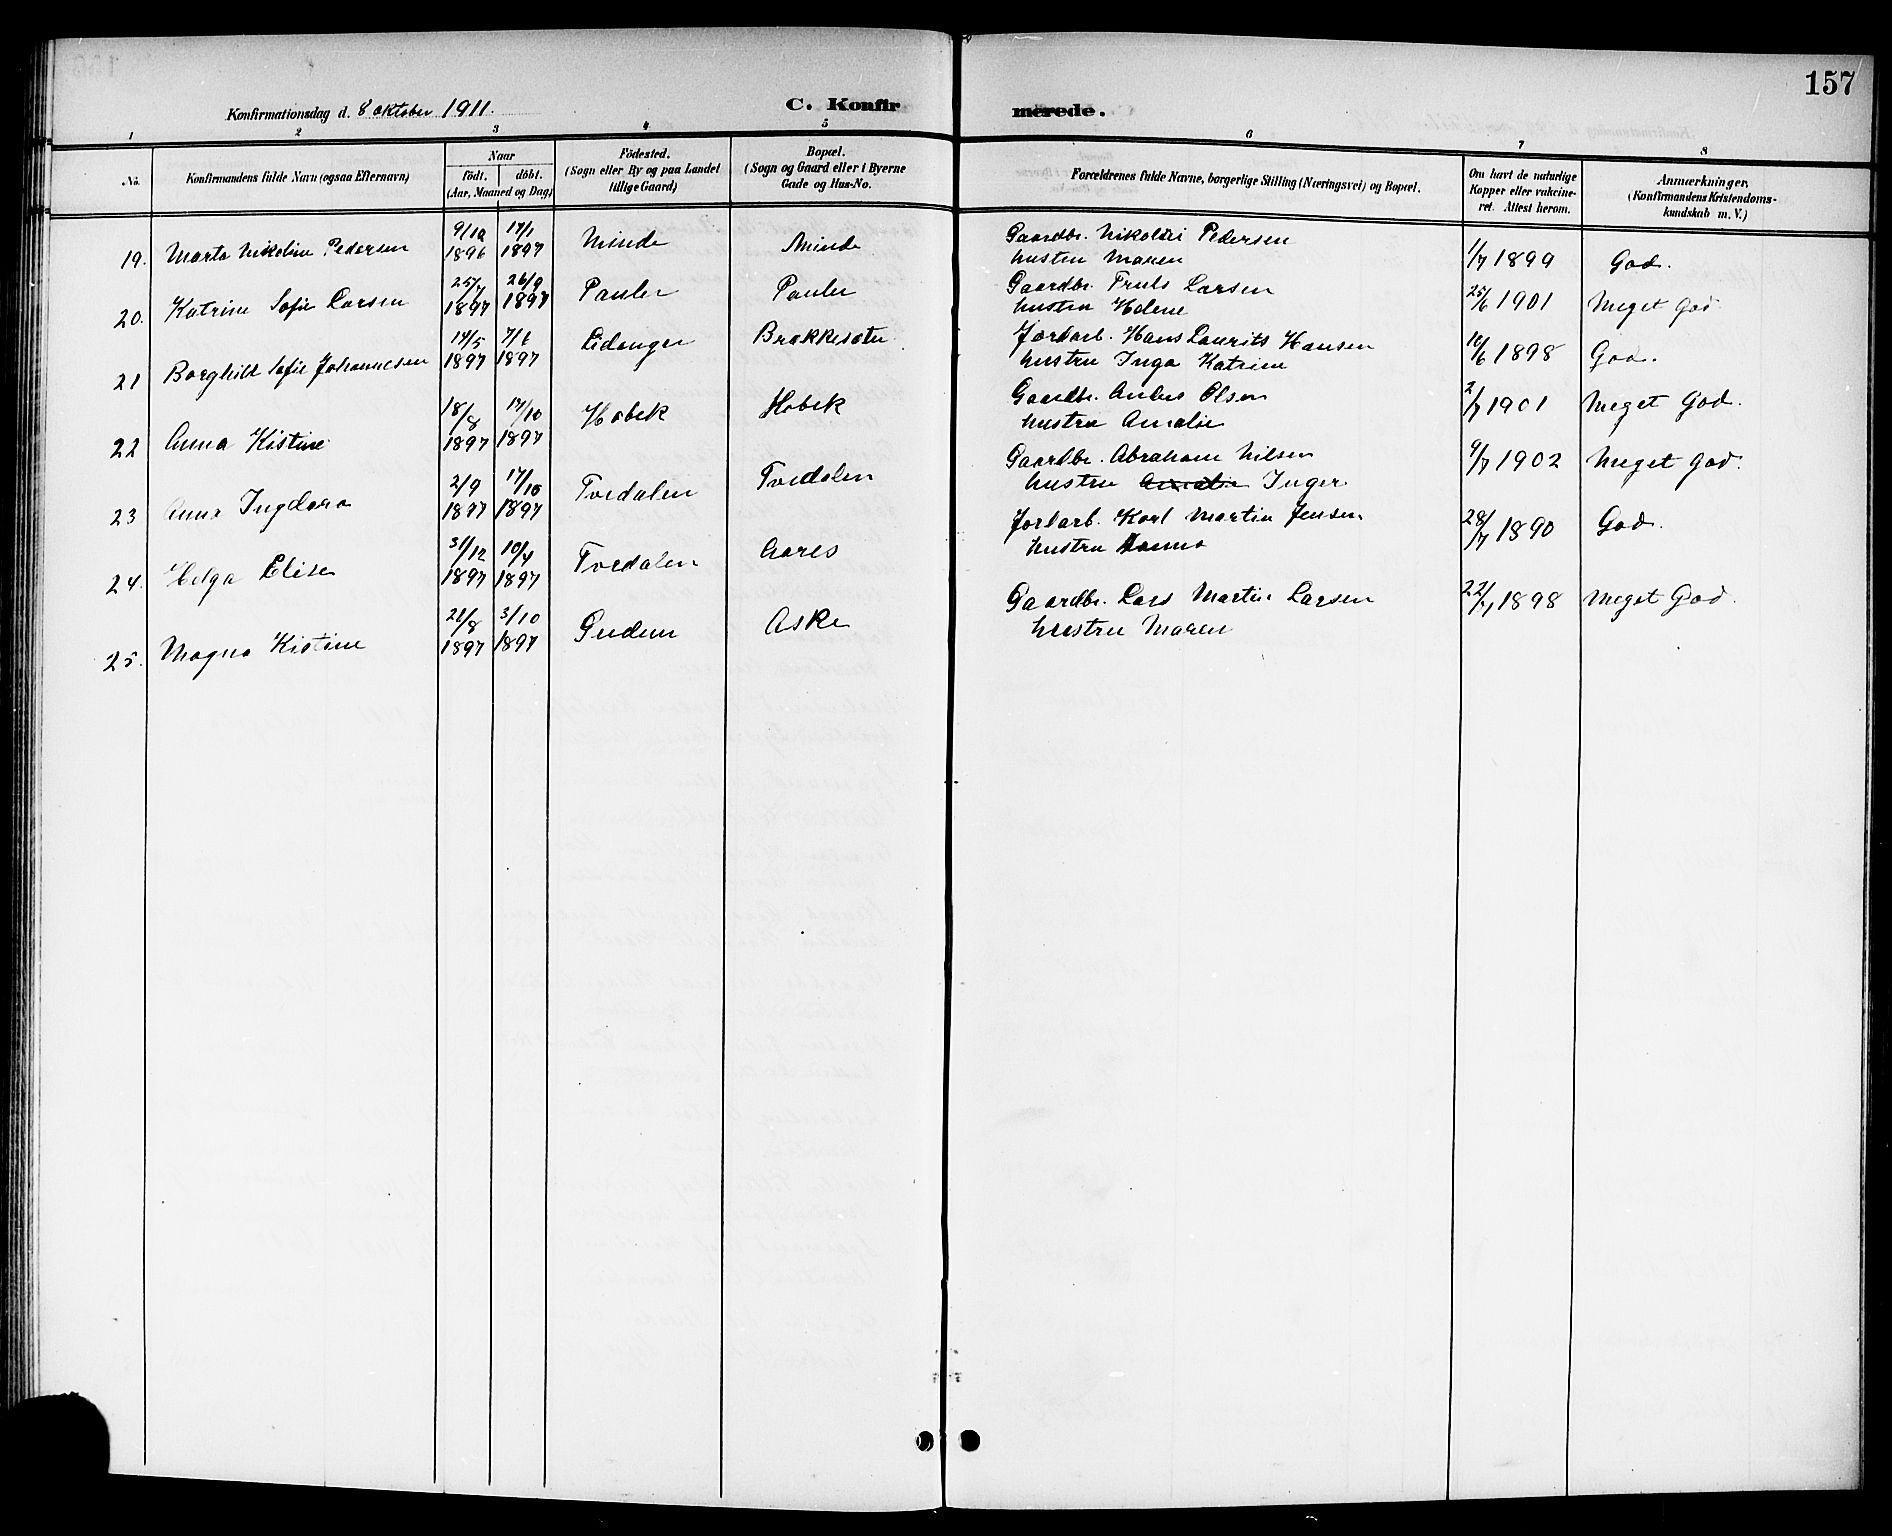 157
Konfirmationsdag d. 8 oktober 1911.
C. Konfirmerede.
1 2 3 4 5 6 7 8
No. Konfirmandens fulde Navn (ogsaa Efternavn) Naar födt. döbt. (Aar, Maaned og Dag) Födested. (Sogn eller By og paa Landet tillige Gaard) Bopæl. (Sogn og Gaard eller i Byerne Gade og Hus-No. Forældrenes fulde Navne, borgerlige Stilling (Næringsvei) og Bopæl. Om havt de naturlige Kopper eller vakcineret. Attest herom. Anmærkninger. (Konfirmandens Kristendomskundskab m. V.)
19. Marta Nikoline Pedersen 9/10 1896 17/1 1897 Minde Minde Gaardbr. Nikolai Pedersen
hustru Maren 1/7 1899 God.
20. Katrine Sofie Larsen 25/7 1897 26/9 1897 Pauler Pauler Gaardbr. Truls Larsen
hustru Helene 25/6 1901 Meget God
21 Borghild Sofie Johannesen 14/5 1897 7/6 1897 Eidanger Brakkesøtu Jordarb. Hans Laurits Hansen
hustru Inga Katrine 10/6 1898 God.
22 Anna Kistine 18/8 1897 17/10 1897 Hobek Hobek Gaardbr. Anders Olsen
hustru Amalie 2/7 1901 Meget God.
23 Anna Ingdora 2/9 1897 17/10 1897 Tvedalen Tvedalen Gaardbr. Abraham Nilsen
hustru Amalie Inger 9/7 1902 Meget God.
24. Helga Elise 31/12 1897 10/4 1897 Tvedalen Aares Jordarb. Karl Martin Jensen
hustru Hanna 28/7 1890 God.
25. Magna Kistine 21/8 1897 3/10 1897 Gudem Aske Gaardbr. Lars Martin Larsen
hustru Maren 22/7 1898 Meget God.